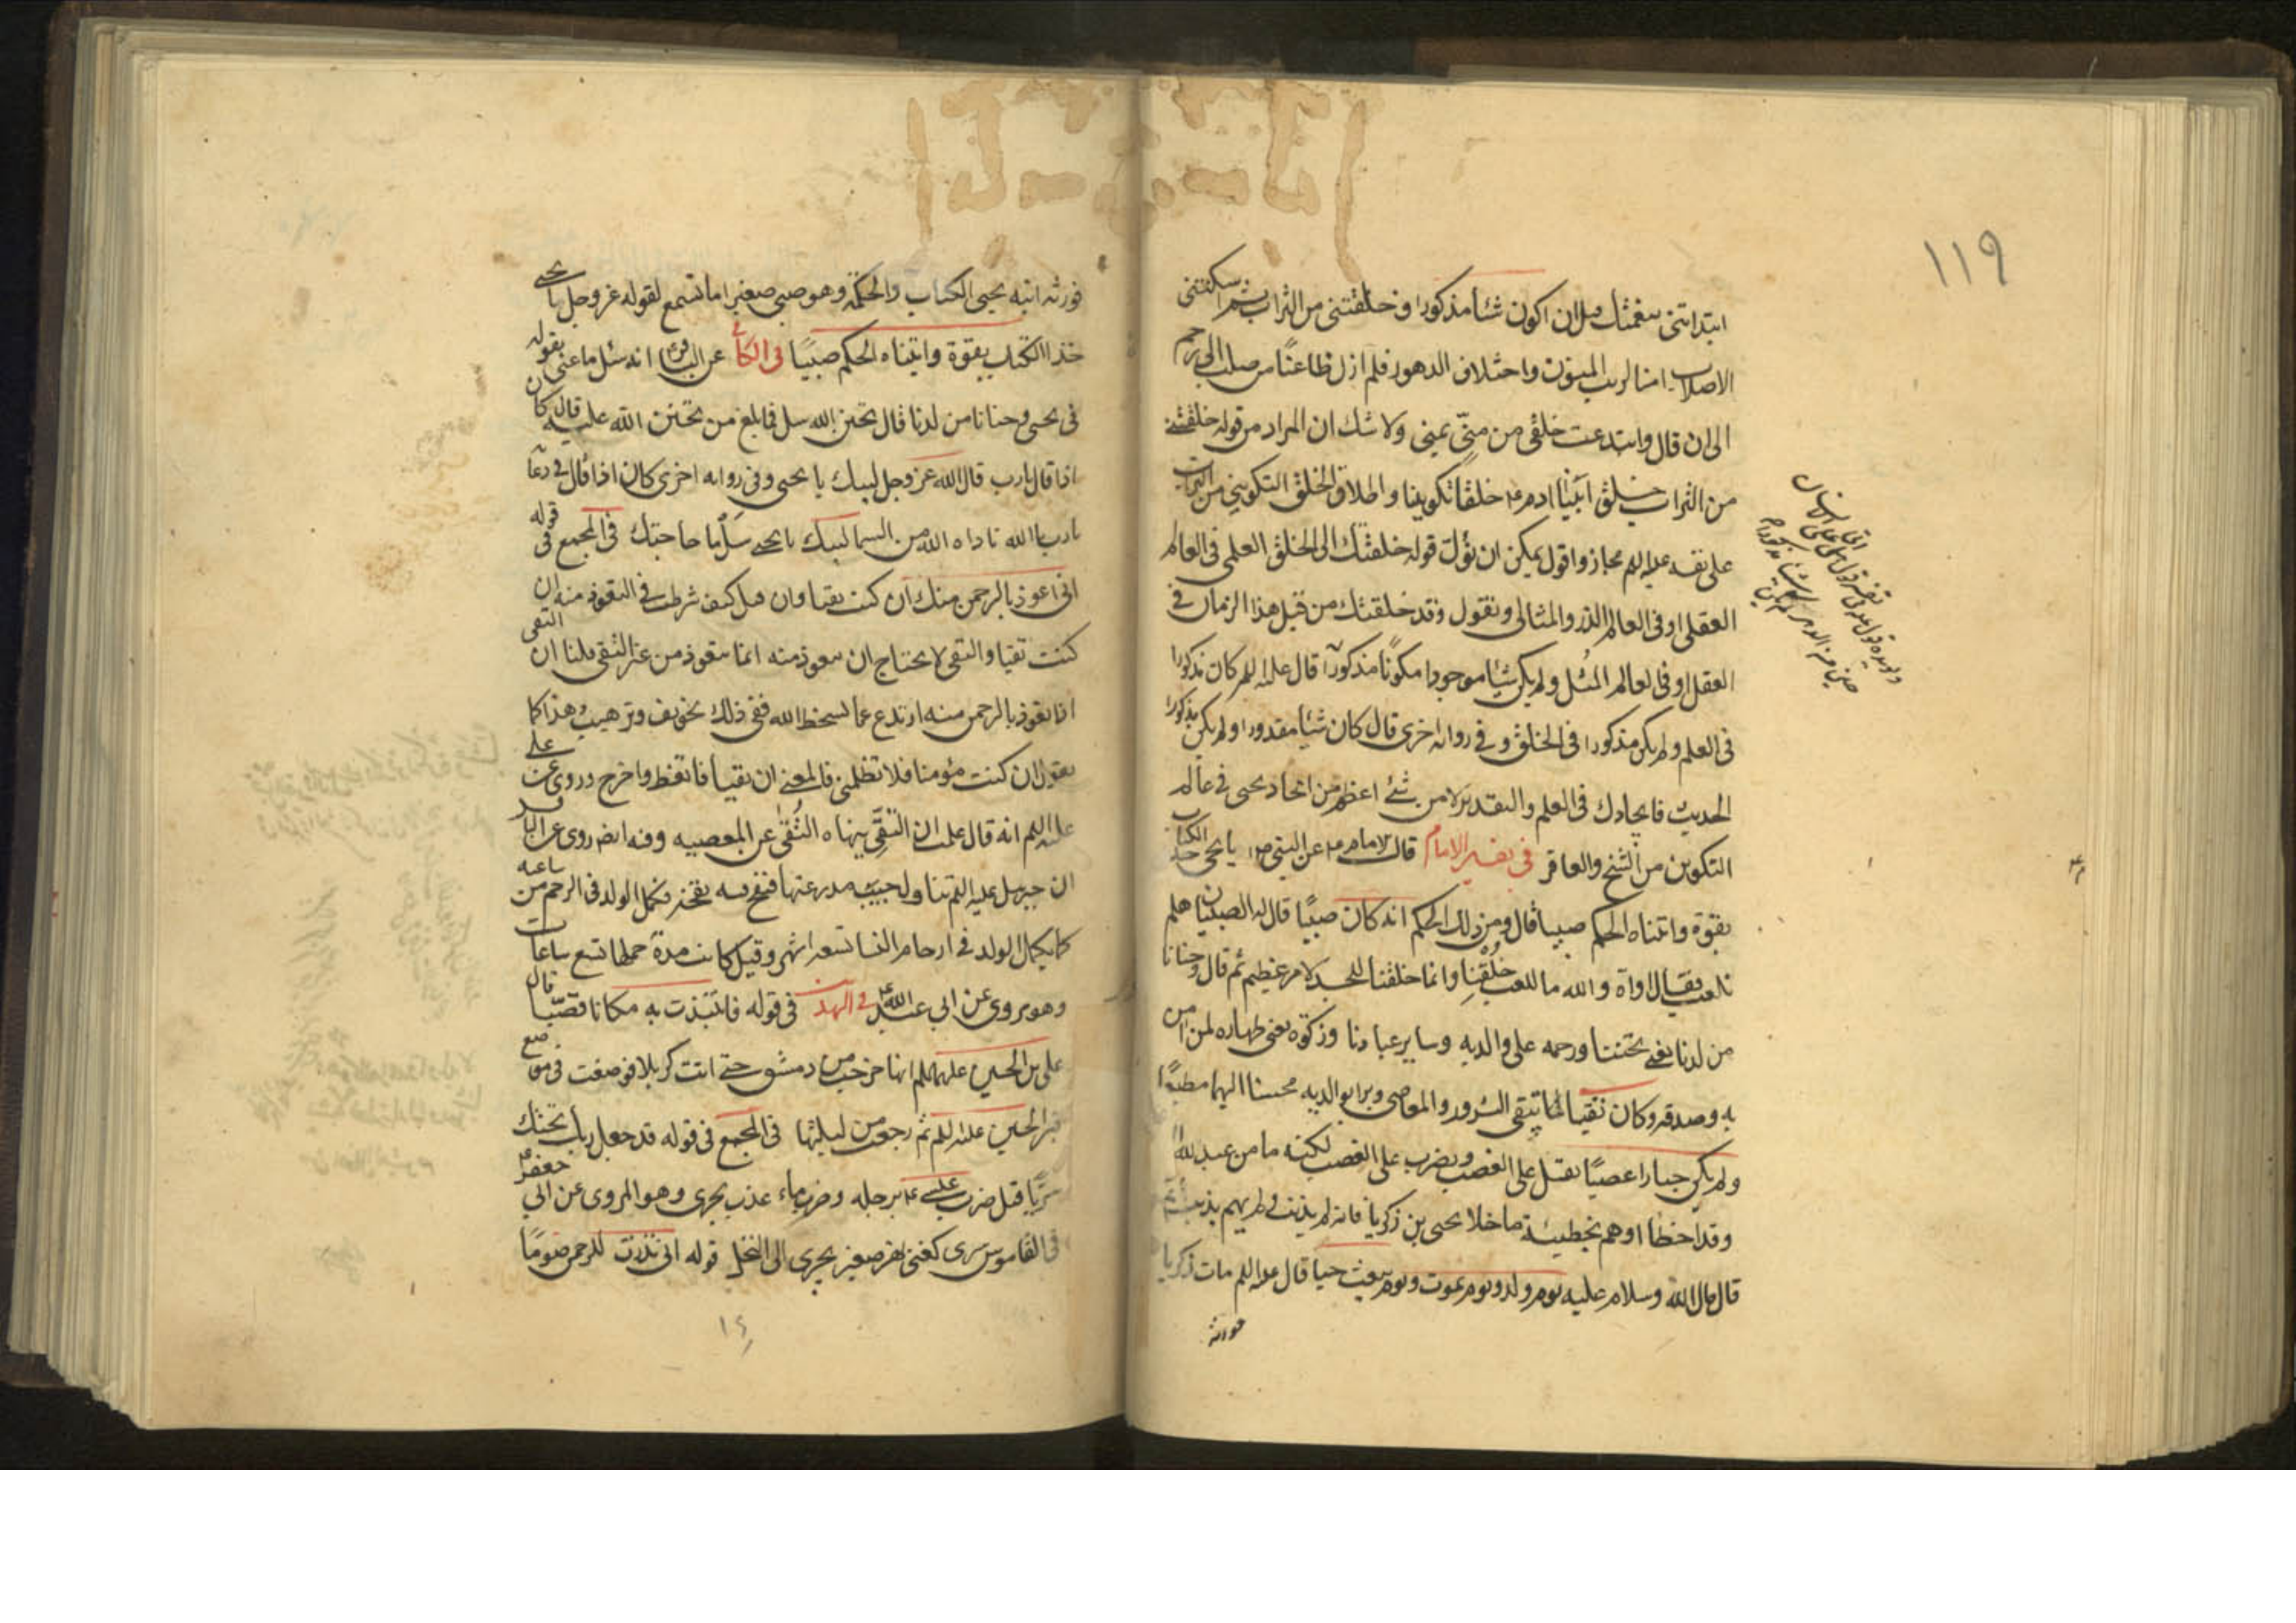 ١١٩
ابتدأتنى بنعمتك قبل ان اكون شيئا مذكورا وخلقتنى من التراب ثم اسكنتنى
الاصلاب امنا لريب المنون واختلاف الدهور فلم ازل ظاعنا من صلب الى رحم
الى ان قال وابتدعت خلقى من منىّ يمنى ولا شك ان المراد من قوله خلقتنى
من التراب خلق ابينا ادم ع خلقا تكوينيا واطلاق الخلق التكوينى من التراب
على نفسه عليه السلم مجاز واقول يمكن ان نؤل قوله خلقتك الى الخلق العلمى فى العالم
العقلى او فى العالم الذر والمثالى ونقول وقد خلقتك من قبل هذا الزمان فى
العقل او فى لعالم المثل ولم يكن شيئا موجودا مكونا مذكورا قال عليه السلم كان مذكورا
فى العلم ولم يكن مذكورا فى الخلق وفى رواية اخرى قال كان شيئا مقدورا ولم يكن مذكورا
الحديث فايجادك فى العلم والتقدير لا من شئ اعظم من ايجاد يحيى فى عالم
التكوين من الشيخ والعاقر فى تفسير الامام قال الامام ع عن النبى ص يا يحيى خذ الكتاب
بقوة واتيناه الحكم صبيا قال ومن ذلك الحكم انه كان صبيا قال له الصبيان هلم
نلعب فقال اواه والله ما للعب خلقنا وانما خلقنا للجد لامر عظيم ثم قال وحنانا
من لدنا يعنى تحننا ورحمه على والديه وساير عبادنا وزكوة يعنى طهاره لمن امن
به وصدقه وكان تقيا لما يتقى الشرور والمعاصى وبرا بوالديه محسنا اليهما مطيعا
ولم يكن جبارا عصيا يقتل على الغضب ويضرب على الغضب لكنه ما من عبد لله
وقد اخطا او هم بخطيئة ما خلا يحيى بن زكريا فانه لم يذنب ولم يهم بذنب ثم
قال قال الله وسلام عليه يوم ولد ويوم يموت ويوم يبعث حيا قال عليه السلم مات زكريا
فورثه
فورثه ابنه يحيى الكتاب والحكمة وهو صبى صغير اما تسمع لقوله عز وجل يا يحيى
خذ الكتاب بقوة واتيناه الحكم صبيا فى الكافى عن الباقر ع انه سئل ما عنى بقوله
فى يحيى وحنانا من لدنا قال تحنن الله سل فما بلغ من تحنن الله عليه قال كان
اذا قال يا رب قال الله عز وجل لبيك يا يحيى وفى روايه اخرى كان اذا قال فى دعائه
يا رب يا الله ناداه الله من السما لبيك يا يحيى سل ما حاجتك فى المجمع فى قوله
انى اعوذ بالرحمن منك ان كنت تقيا وان قيل كيف شرطت فى التعوذ منه ان
كنت تقيا والتقى لا يحتاج ان يتعوذ منه انما يتعوذ من غير التقى قلنا ان التقى
اذا تعوذ بالرحمن منه ارتدع عما يسخط الله ففى ذلك تخويف وترهيب وهذا كما
يقول ان كنت مؤمنا فلا تظلمنى فالمعنى ان تقيا فاتعظ واخرج وروى عن على
عليه السلم انه قال علمت ان التقى ينهاه التقى عن المعصيه وفيه ايضا روى عن الباقر
ان جبرئيل عليه السلم تناول جيب مدرعتها فنفخ فيه نفخة فكمل الولد فى الرحم من ساعته
كما يكمل الولد فى ارحام النسا تسعة اشهر وقيل كانت مدة حملها تسع ساعات
وهو مروى عن ابى عبد الله ع فى التهذ فى قوله فانتبذت به مكانا قصيا قال
على بن الحسين عليهما السلم انها خرجت من دمشق حتى اتت كربلا فوضعت فى موضع
قبر الحسين عليه السلم ثم رجعت من ليلتها فى المجمع فى قوله قد جعل ربك تحتك
سريا قيل ضرب عيسى ع برجله وضرب ماء عذب يجرى وهو المروى عن ابى جعفر ع
فى القاموس سرى كغنى نهر صغير يجرى الى النخل قوله انى نذرت للرحمن صوما